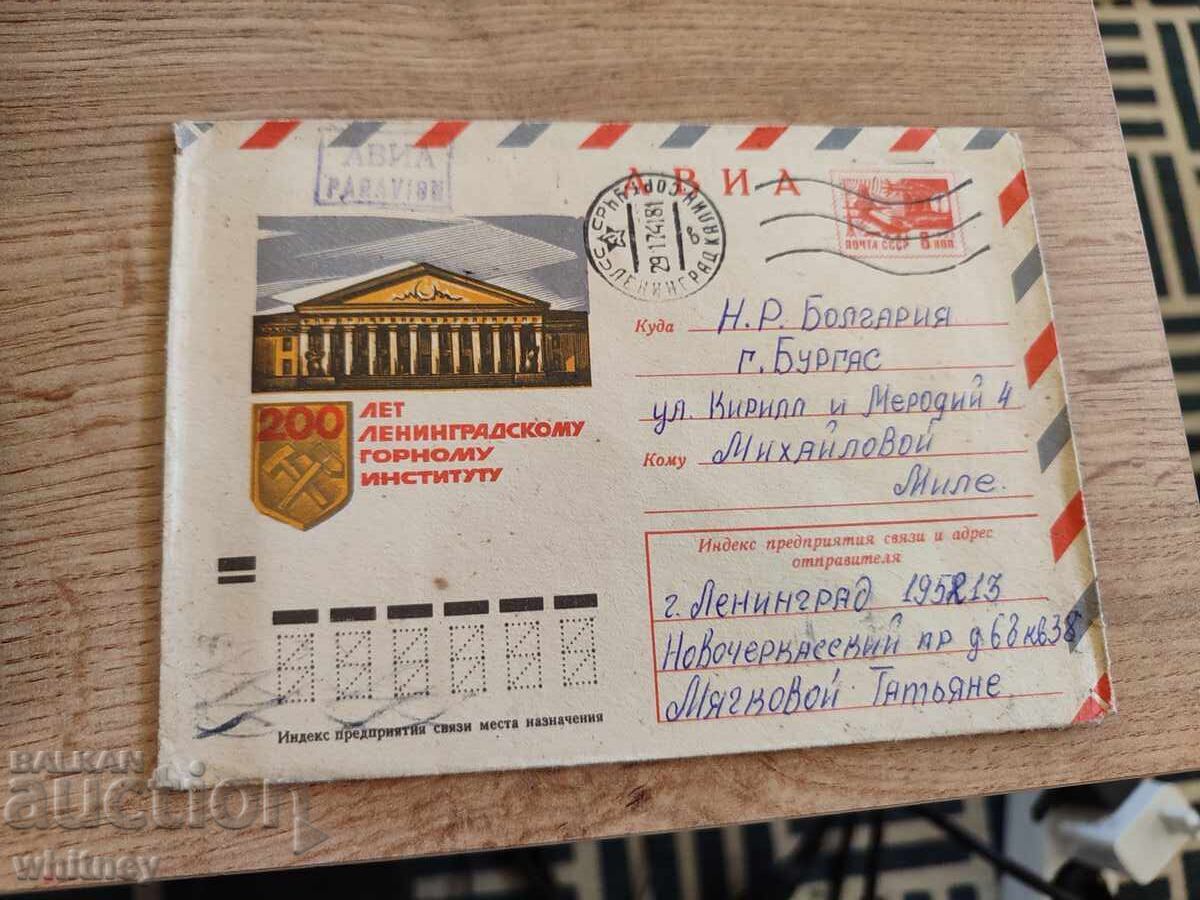 АВИА
PARAVION
АВИА
ЛЕНИНГРАД
29174181
в
ПОЧТА СССР 6 коп
200 ЛЕТ
ЛЕНИНГРАДСКОМУ
ГОРНОМУ
ИНСТИТУТУ
Куда Н.Р. Болгария
г. Бургас
ул. Кирилл и Меродий 4
Кому Михайловой
Миле.
Индекс предприятия связи и адрес
отправителя
г. Ленинград 195213
Новочеркасский пр д 68 кв 38
Мячковой Татьяне
Индекс предприятия связи места назначения
BALKAN
auction
whitney